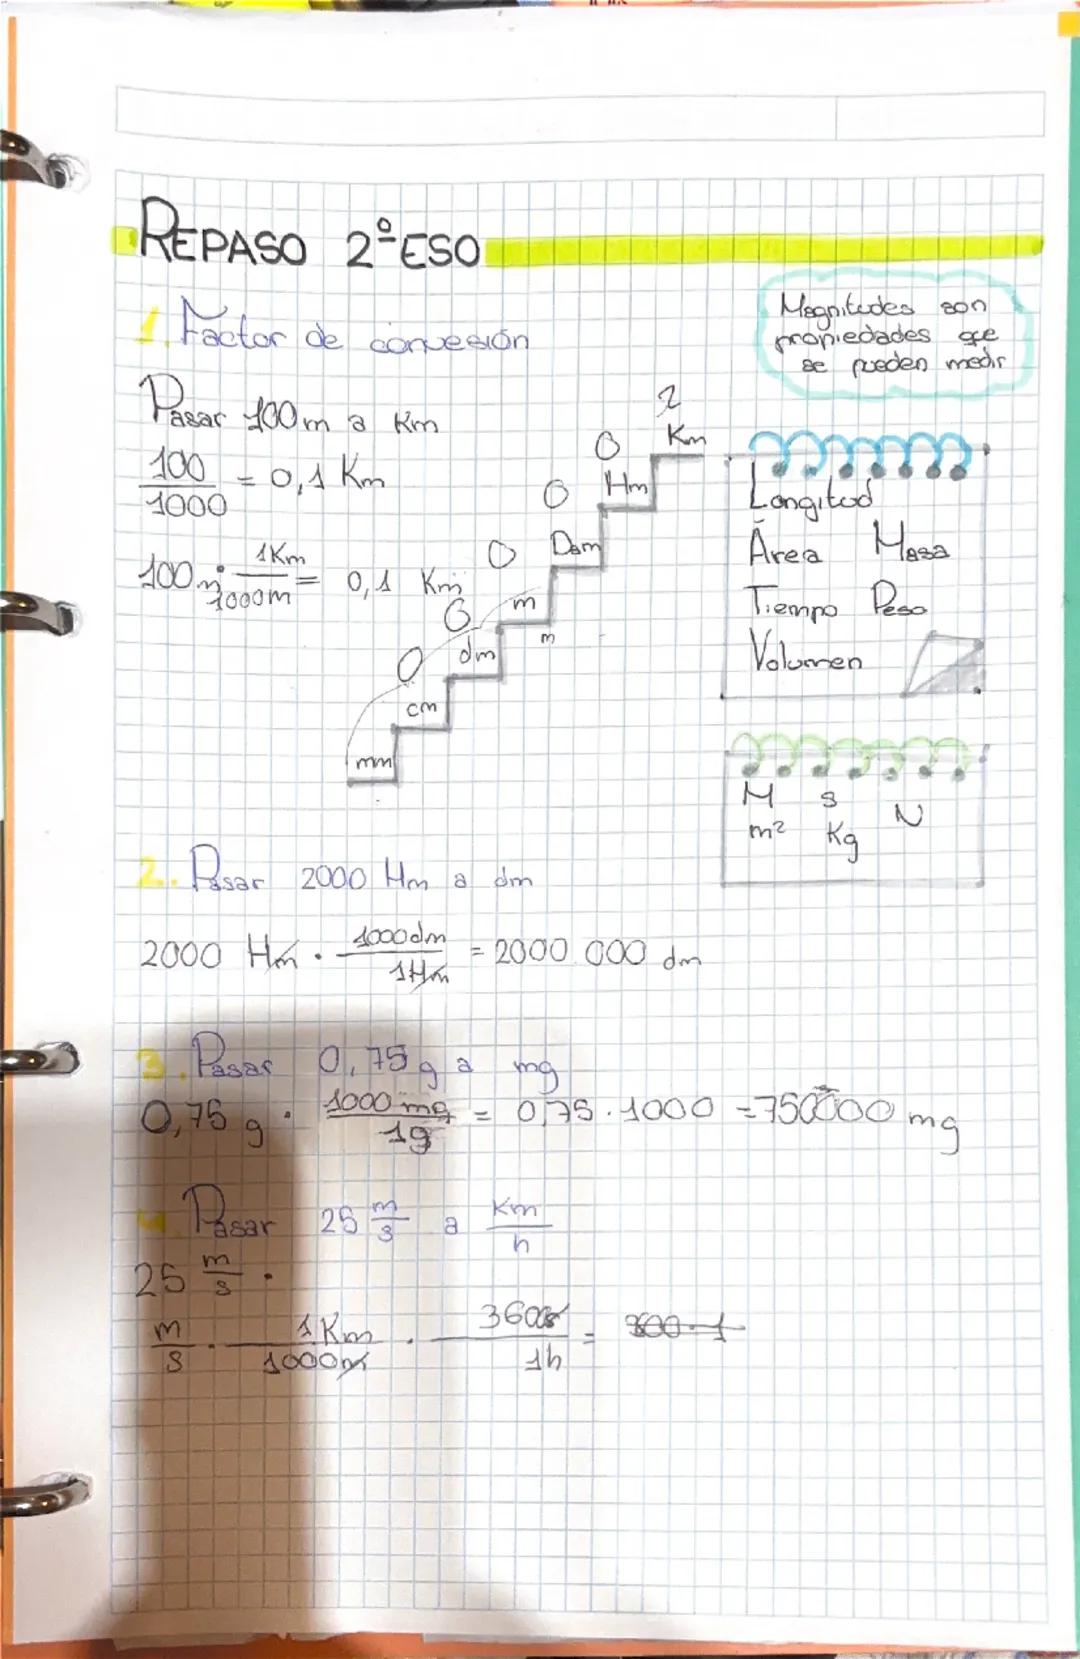 REPASO 2º ESO
1. Factor de convesión
Magnitudes son
propiedades que
se pueden medir
Pasar 100m a Km
100/1000 = 0,1 Km
100 m · 1Km/1000m = 0,1 Km
2
Km
0
Hm
0
Dam
0
m
m
0
dm
0
cm
mm
Longitud
Área Masa
Tiempo Peso
Volumen
M s N
m² Kg
2. Pasar 2000 Hm a dm
2000 Hm · 1000dm/1Hm = 2000.000 dm
3. Pasar 0,75 g a mg
0,75 g · 1000 mg/1g = 0,75 · 1000 = 750000 mg
4. Pasar 25 m/s a Km/h
25 m/s ·
m/s · 1 Km/1000m · 3600s/1h =